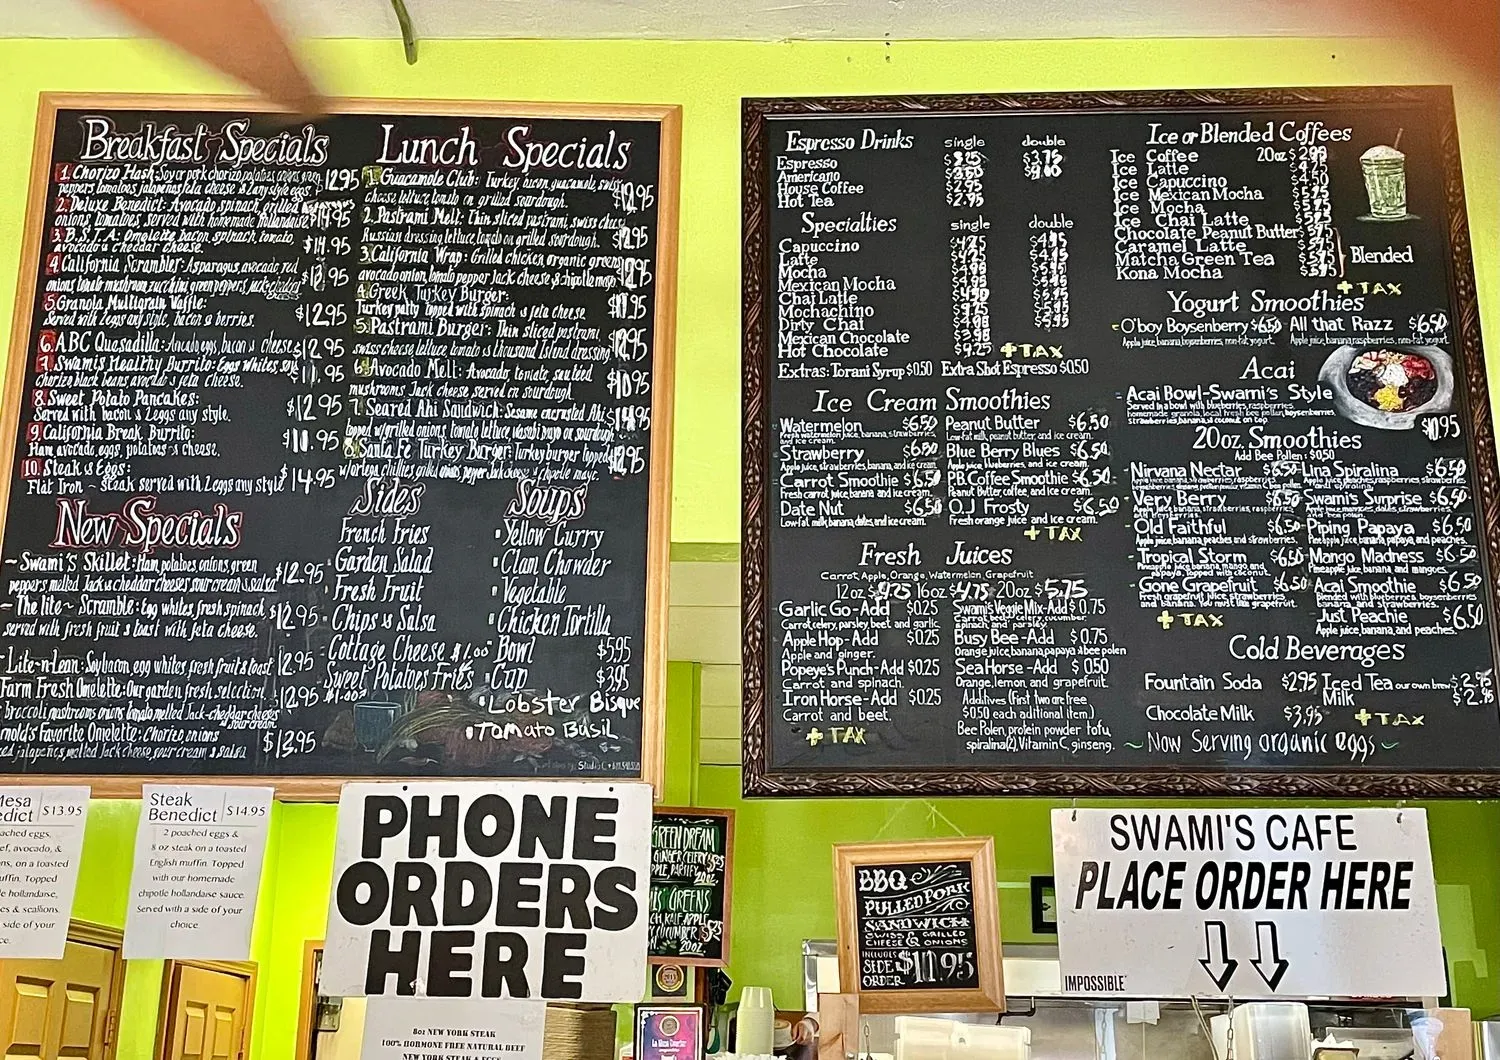 Breakfast Specials
1. Chorizo Hash: Soy or pork chorizo, potatoes, onions, green
peppers, tomatoes, jalapeños, feta cheese & 2 any style eggs. $12.95
2. Deluxe Benedict: Avocado, spinach, grilled
onions, tomatoes, served with homemade $14.95
3. B.S.T.A: Omelette, bacon, spinach, tomato,
avocado & cheddar cheese. $14.95
4. California Scrambler: Asparagus, avocado, red
onions, tomato, mushroom, zucchini, green peppers, jack-cheddar $13.95
5. Granola Multigrain Waffle:
Served with 2 eggs any style, bacon & berries. $12.95
6. ABC Quesadilla: Avocado, eggs, bacon & cheese $12.95
7. Swami's Healthy Burrito: Eggs whites, soy
chorizo, black beans, avocado & feta cheese. $11.95
8. Sweet Potato Pancakes:
Served with bacon & 2 eggs any style. $12.95
9. California Break Burrito:
Ham, avocado, eggs, potatoes & cheese. $11.95
10. Steak & Eggs:
Flat Iron ~ steak served with 2 eggs any style $14.95
New Specials
~ Swami's Skillet: Ham, potatoes, onions, green
peppers, melted Jack & cheddar cheeses, sour cream & salsa $12.95
~ The lite ~ Scramble: Egg whites, fresh spinach
served with fresh fruit & toast with feta cheese. $12.95
~ Lite-n-Lean: Soy bacon, egg whites, fresh fruit & toast $12.95
Farm Fresh Omelette: Our garden fresh selection,
broccoli, mushrooms, onions, tomato, melted Jack-cheddar cheeses $12.95
sour cream
Arnold's Favorite Omelette: Chorizo, onions
jalapeños, melted Jack cheese, sour cream & salsa $13.95
Lunch Specials
1. Guacamole Club: Turkey, bacon, guacamole, swiss
cheese, lettuce, tomato on grilled sourdough. $12.95
2. Pastrami Melt: Thin sliced pastrami, swiss cheese
Russian dressing, lettuce, tomato on grilled sourdough. $12.95
3. California Wrap: Grilled chicken, organic greens,
avocado, onion, tomato, pepper Jack cheese & chipotle mayo. $12.95
4. Greek Turkey Burger:
Turkey patty topped with spinach & feta cheese. $11.95
5. Pastrami Burger: Thin sliced pastrami,
swiss cheese, lettuce, tomato & thousand Island dressing $12.95
6. Avocado Melt: Avocado, tomato, sauteed
mushrooms, Jack cheese served on sourdough. $10.95
7. Seared Ahi Sandwich: Sesame encrusted Ahi
topped w/grilled onions, tomato, lettuce, wasabi mayo on sourdough $14.95
8. Santa Fe Turkey Burger: Turkey burger topped
w/ortega chillies, grilled onions, pepper Jack cheese & chipotle mayo. $12.95
Sides
French Fries
Garden Salad
Fresh Fruit
Chips & Salsa
Cottage Cheese $1.00
Sweet Potatoes Fries
$1.00
Soups
Yellow Curry
Clam Chowder
Vegetable
Chicken Tortilla
Bowl $5.95
Cup $3.95
Lobster Bisque
Tomato Basil
Espresso Drinks single double
Espresso $3.25 $3.75
Americano
House Coffee $2.95
Hot Tea $2.95
Specialties single double
Capuccino
Latte
Mocha
Mexican Mocha
Chai Latte
Mochachino
Dirty Chai
Mexican Chocolate
Hot Chocolate + TAX
Extras: Torani Syrup $0.50 Extra Shot Espresso $0.50
Ice Cream Smoothies
Watermelon $6.50
Fresh watermelon juice, banana, strawberries, and ice cream.
Strawberry $6.50
Apple juice, strawberries, banana, and ice cream
Carrot Smoothie $6.50
Fresh carrot juice, banana and ice cream.
Date Nut $6.50
Low-fat milk, banana, dates, and ice cream.
Peanut Butter $6.50
Low-fat milk, peanut butter, and ice cream.
Blue Berry Blues $6.50
Apple juice, blueberries, and ice cream.
P.B. Coffee Smoothie $6.50
Peanut Butter, coffee, and ice cream.
O.J. Frosty $6.50
Fresh orange juice and ice cream.
+ TAX
Fresh Juices
Carrot, Apple, Orange, Watermelon, Grapefruit
12 oz 16 oz $4.75 20 oz $5.75
Garlic Go-Add $0.25
Carrot, celery, parsley, beet, and garlic.
Apple Hop-Add $0.25
Apple and ginger.
Popeye's Punch-Add $0.25
Carrot and spinach.
Iron Horse-Add $0.25
Carrot and beet.
+ TAX
Swami's Veggie Mix-Add $0.75
Carrot, beet, celery, cucumber, spinach, and parsley.
Busy Bee-Add $0.75
Orange juice, banana, papaya & bee polen
Sea Horse-Add $0.50
Orange, lemon, and grapefruit.
Additives (First two are free
$0.50 each aditional item)
Bee Polen, protein powder, tofu,
spiralina(2), Vitamin C, ginseng.
Ice or Blended Coffees
Ice Coffee 20oz $2.99
Ice Latte
Ice Capuccino
Ice Mexican Mocha
Ice Mocha
Ice Chai Latte
Chocolate Peanut Butter
Caramel Latte
Matcha Green Tea
Kona Mocha
Blended
+ TAX
Yogurt Smoothies
O'boy Boysenberry $6.50
Apple juice, banana, boysenberries, non-fat yogurt.
All that Razz $6.50
Apple juice, banana, raspberries, non-fat yogurt.
Acai
Acai Bowl-Swami's Style
Served in a bowl with blueberries, raspberries,
homemade granola, local fresh bee pollen, boysenberries,
strawberries, & coconut on top. $10.95
20oz. Smoothies
Add Bee Pollen: $0.50
Nirvana Nectar $6.50
Very Berry $6.50
Old Faithful $6.50
Apple juice, banana, peaches and strawberries.
Tropical Storm $6.50
Pineapple juice, banana, mango, and
papaya, topped with coconut.
Gone Grapefruit $6.50
Fresh grapefruit juice, strawberries,
and banana. You must like grapefruit.
+ TAX
Lina Spiralina $6.50
Apple juice, peaches, raspberries, strawberries, and spirulina.
Swami's Surprise $6.50
Piping Papaya $6.50
Pineapple juice, banana, papaya, and peaches.
Mango Madness $6.50
Pineapple juice, banana, and mangoes.
Acai Smoothie $6.50
Blended with blueberries, boysenberries
banana, and strawberries.
Just Peachie $6.50
Apple juice, banana, and peaches.
Cold Beverages
Fountain Soda $2.95 Iced Tea our own brew $2.95
Milk $2.95
Chocolate Milk $3.95 + TAX
~ Now Serving organic eggs ~
Mesa
edict $13.95
Steak
Benedict $14.95
2 poached eggs &
8 oz steak on a toasted
English muffin. Topped
with our homemade
chipotle hollandaise sauce.
Served with a side of your
choice.
PHONE
ORDERS
HERE
8oz NEW YORK STEAK
100% HORMONE FREE NATURAL BEEF
NEW YORK STEAK & EGGS
GREEN DREAM
GINGER, CELERY
APPLE, PARSLEY
20oz.
GREENS
KALE, APPLE
CUCUMBER $5.25
20oz.
BBQ
PULLED PORK
SANDWICH
SWISS & GRILLED
CHEESE & ONIONS
INCLUDES
SIDE
ORDER $11.95
SWAMI'S CAFE
PLACE ORDER HERE
IMPOSSIBLE